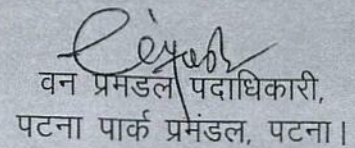 वन प्रमंडल पदाधिकारी,
पटना पार्क प्रमंडल, पटना।